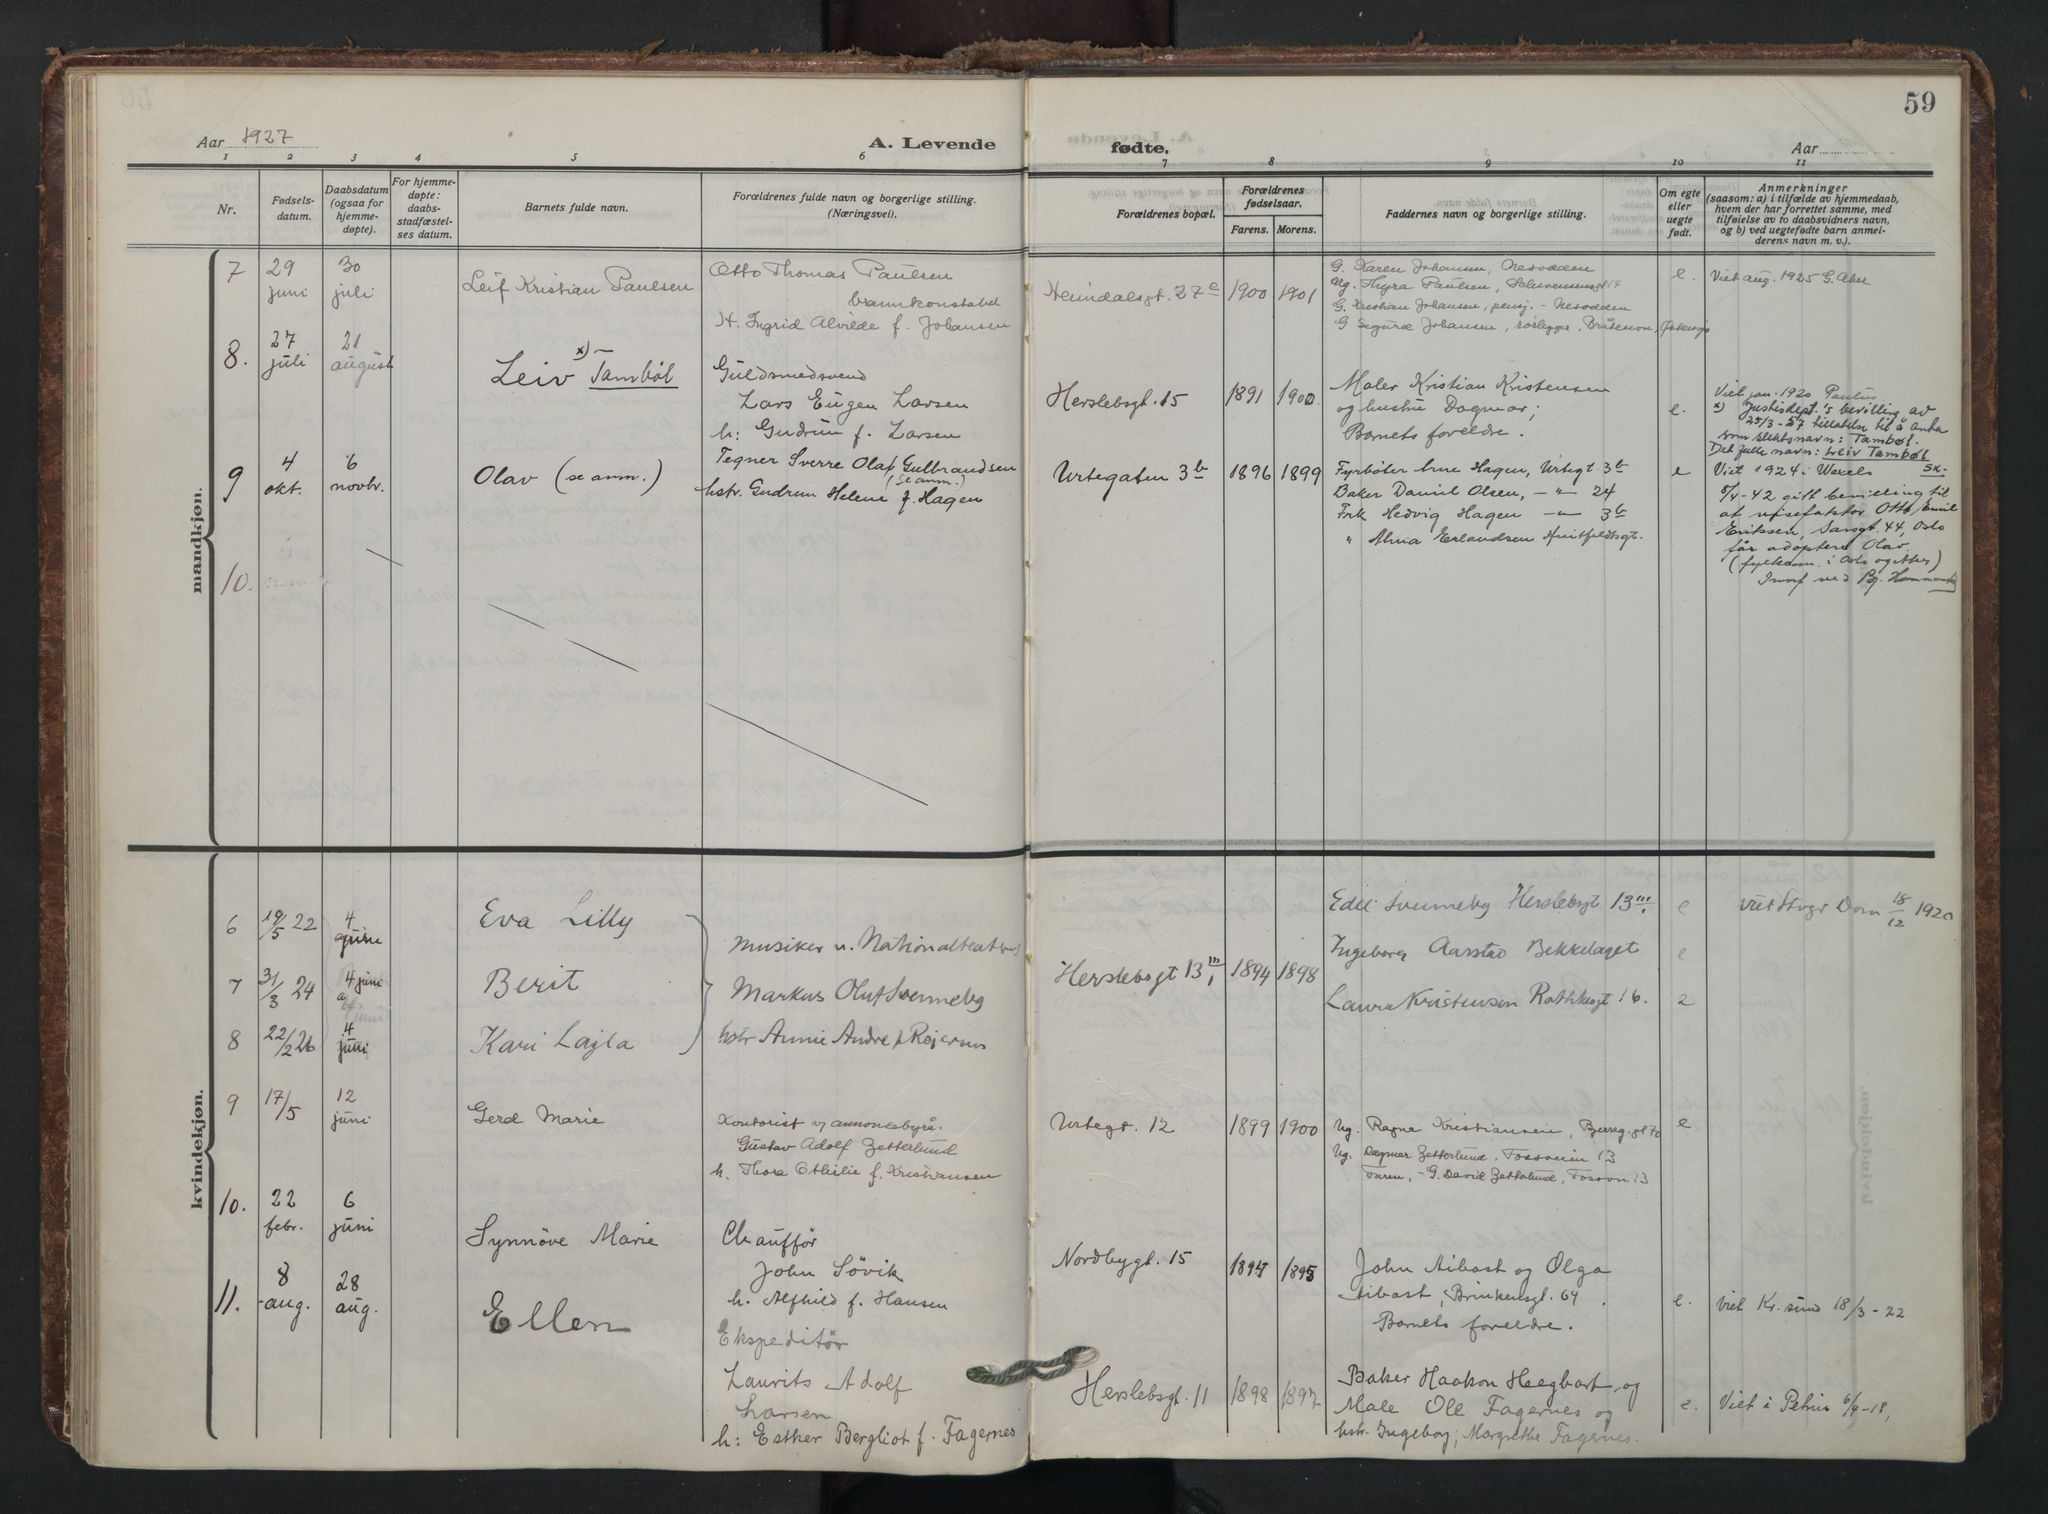 59
Aar 1927
A. Levende
fødte.
Aar
1 2 3 4 5 6 7 8 9 10 11
Nr.
Fødsels-
datum.
Daabsdatum
(ogsaa for
hjemme-
døpte).
For hjemme-
døpte:
daabs-
stadfæstel-
ses datum.
Barnets fulde navn.
Forældrenes fulde navn og borgerlige stilling.
(Næringsvei).
Forældrenes bopæl.
Forældrenes
fødselsaar.
Farens. Morens.
Faddernes navn og borgerlige stilling.
Om egte
eller
uegte
født.
Anmerkninger
(saasom: a) i tilfælde av hjemmedaab,
hvem der har forrettet samme, med
tilføielse av to daabsvidners navn,
og b) ved uegtefødte barn anmel-
derens navn m. v.).
mandkjøn.
7
29
juni
30
juli
Leif Kristian Paulsen
Otto Thomas Paulsen
brannkonstabel
H. Ingrid Alvilde f. Johansen
Heimdalsgt. 27c
1900 1901
G. Karen Johansen, Nesodden
Ug. Thyra Paulsen,
G. Kristian Johansen, pensj. - Nesodden
G Sigurd Johansen, rørlegger,
e.
Viet aug. 1925 G. Aker
8.
27
juli
21
august
Leiv x) Tambøl
Guldsmedsvend
Lars Eugen Larsen
h: Gudrun f. Larsen
Herslebsgt. 15
1891 1900
Maler Kristian Kristensen
og hustru Dagmar;
Barnets foreldre.
e.
Viet jan. 1920 Paulus
x) Justisdept.'s bevilling av
25/3-57 tillatelse til å anta
som slektsnavn: Tambøl.
Det fulle navn: Leiv Tambøl
SK.
9
4
okt.
6
novbr.
Olav (se anm.)
Tegner Sverre Olaf Gulbrandsen
(se anm.)
hstr. Gudrun Helene f. Hagen
Urtegaten 3b
1896 1899
Fyrbøter Arne Hagen, Urtegt 3b
Baker Daniel Olsen, -"- 24
Frk Hedvig Hagen -"- 3b
" Alma Erlandsen Huitfeldtsgt.
e
Viet 1924 i Wexels
8/4-42 gitt bevilling til
at visefaktor Otto Emil
Erikssen, Sarsgt 44, Oslo
får adoptere Olav
(fylkdm. i Oslo og Aker)
10.
kvindekjøn.
6
19/5 22
4
juni
Eva Lilly
Edel Svenneby Herslebsgt 13III
e
viet Dom 18/12 1920
7
31/3 24
4 juni
Berit
Musiker v. Nationalteatret
Markus Oluf Svenneby
Herslebsgt 13III
1894 1898
Ingeborg Aarstad Bekkelaget
e
8
22/2 26
4
juni
Kari Lajla
hstr Annie Andre f Rejersen
Laura Kristensen Rathkesgt 16.
e
9
17/5
12
juni
Gerd Marie
Kontorist v/ annoncebyrå.
Gustav Adolf Zetterlund
h. Thora Othilie f. Kristiansen
Urtegt. 12
1899 1900
Ug. Ragna Kristiansen,
Ug. Dagmar Zetterlund, Fossveien 13
Faren, - G. David Zetterlund, Fossvn 13
e
10.
22
febr.
6
juni
Synnöve Marie
Chaufför
John Sövik
h. Alfhild f. Hansen
Nordbygt. 15
1894 1895
John Aibast og Olga
Aibast, Brinkensgt. 64.
Barnets foreldre.
e.
Viet Kr. sund 18/3-22
11.
8
aug.
28
aug.
Ellen
Ekspeditör
Laurits Adolf
Larsen
h: Esther Bergliot f. Fagernes
Herslebsgt. 11
1898 1897
Baker Haakon Hegbart og
Male Ole Fagernes og
hstr. Ingeborg, Margrethe Fagernes.
e.
Viet i Petrus 6/4-18,